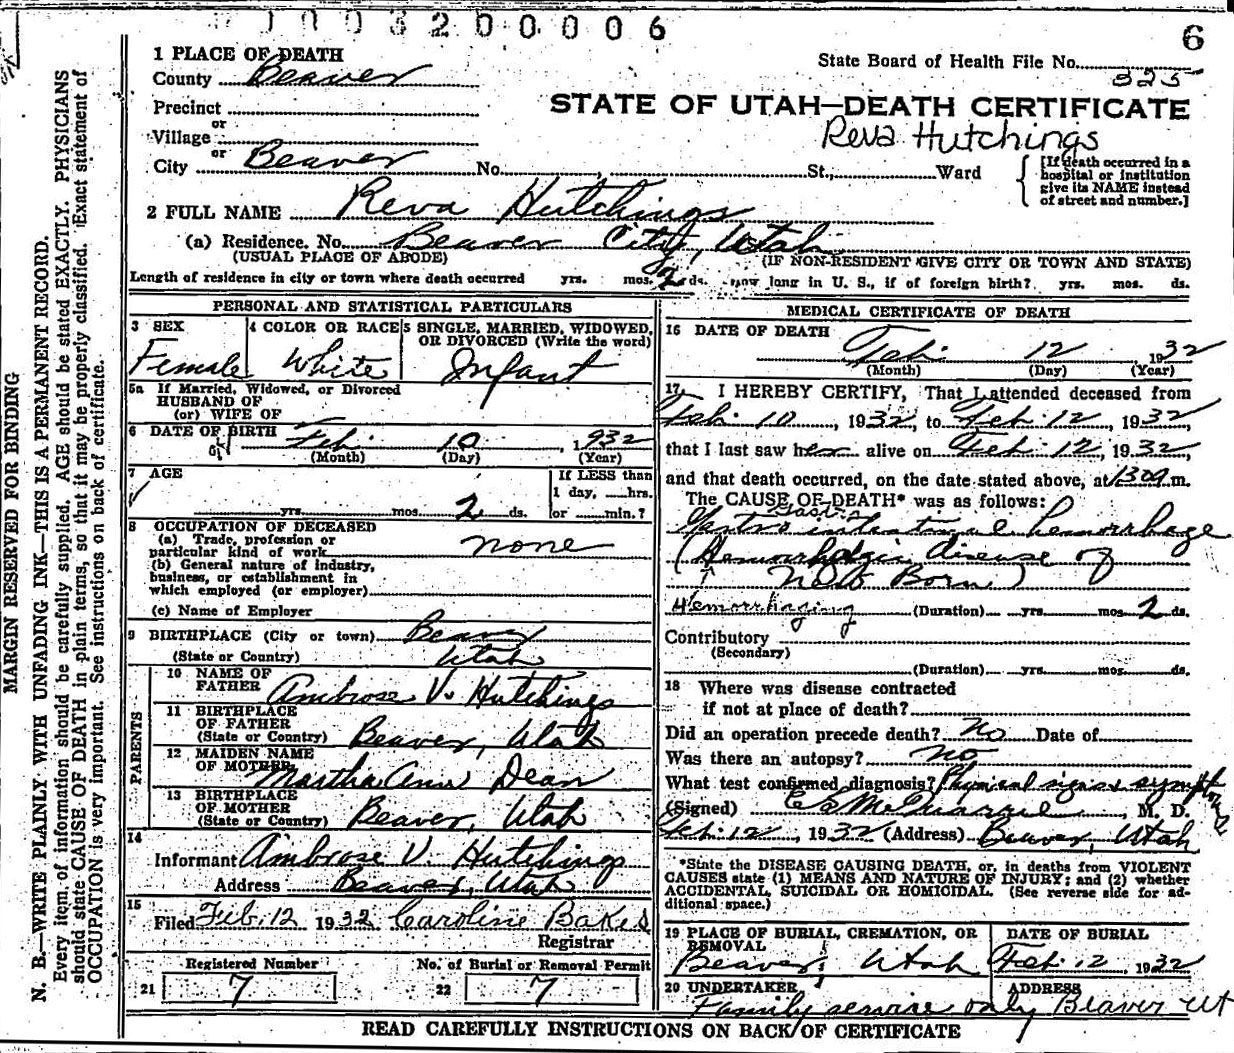 1003200006
6
1 PLACE OF DEATH
State Board of Health File No. 325
County Beaver
STATE OF UTAH—DEATH CERTIFICATE
Precinct
or
Reva Hutchings
Village
or
City Beaver No. St., Ward
[If death occurred in a
hospital or institution
give its NAME instead
of street and number.]
2 FULL NAME Reva Hutchings
(a) Residence. No. Beaver City, Utah
(USUAL PLACE OF ABODE) (IF NON-RESIDENT GIVE CITY OR TOWN AND STATE)
Length of residence in city or town where death occurred yrs. mos. 2 ds. How long in U. S., if of foreign birth? yrs. mos. ds.
PERSONAL AND STATISTICAL PARTICULARS
3 SEX
Female
4 COLOR OR RACE
White
5 SINGLE, MARRIED, WIDOWED,
OR DIVORCED (Write the word)
Infant
5a If Married, Widowed, or Divorced
HUSBAND OF
(or) WIFE OF
6 DATE OF BIRTH Feb. 10 1932
(Month) (Day) (Year)
7 AGE
yrs. mos. 2 ds.
If LESS than
1 day, hrs.
or min.?
8 OCCUPATION OF DECEASED
(a) Trade, profession or
particular kind of work none
(b) General nature of industry,
business, or establishment in
which employed (or employer)
(c) Name of Employer
9 BIRTHPLACE (City or town) Beaver
(State or Country) Utah
PARENTS
10 NAME OF
FATHER Ambrose V. Hutchings
11 BIRTHPLACE
OF FATHER
(State or Country) Beaver, Utah
12 MAIDEN NAME
OF MOTHER Martha Ann Dean
13 BIRTHPLACE
OF MOTHER
(State or Country) Beaver, Utah
14
Informant Ambrose V. Hutchings
Address Beaver, Utah
15
Filed Feb. 12 1932 Caroline Bakes
Registrar
Registered Number
21 7
No. of Burial or Removal Permit
22 7
MEDICAL CERTIFICATE OF DEATH
16 DATE OF DEATH
Feb. 12, 1932
(Month) (Day) (Year)
17 I HEREBY CERTIFY, That I attended deceased from
Feb. 10, 1932, to Feb. 12, 1932
that I last saw her alive on Feb. 12, 1932
and that death occurred, on the date stated above, at 130a m.
The CAUSE OF DEATH* was as follows:
Gastro intestinal hemorrhage
(Hemorrhagic disease of
New Born)
Hemorrhaging (Duration) yrs. mos. 2 ds.
Contributory
(Secondary)
(Duration) yrs. mos. ds.
18 Where was disease contracted
if not at place of death?
Did an operation precede death? No Date of
Was there an autopsy? No
What test confirmed diagnosis? Physical signs & symptoms
(Signed) M. D.
Feb. 12, 1932 (Address) Beaver, Utah
*State the DISEASE CAUSING DEATH, or, in deaths from VIOLENT
CAUSES state (1) MEANS AND NATURE OF INJURY; and (2) whether
ACCIDENTAL, SUICIDAL OR HOMICIDAL. (See reverse side for ad-
ditional space.)
19 PLACE OF BURIAL, CREMATION, OR
REMOVAL
Beaver, Utah
DATE OF BURIAL
Feb. 12, 1932
20 UNDERTAKER
Family service only
ADDRESS
Beaver Ut
READ CAREFULLY INSTRUCTIONS ON BACK OF CERTIFICATE
MARGIN RESERVED FOR BINDING
N. B.—WRITE PLAINLY WITH UNFADING INK—THIS IS A PERMANENT RECORD.
Every item of information should be carefully supplied. AGE should be stated EXACTLY. PHYSICIANS
should state CAUSE OF DEATH in plain terms, so that it may be properly classified. Exact statement of
OCCUPATION is very important. See instructions on back of certificate.